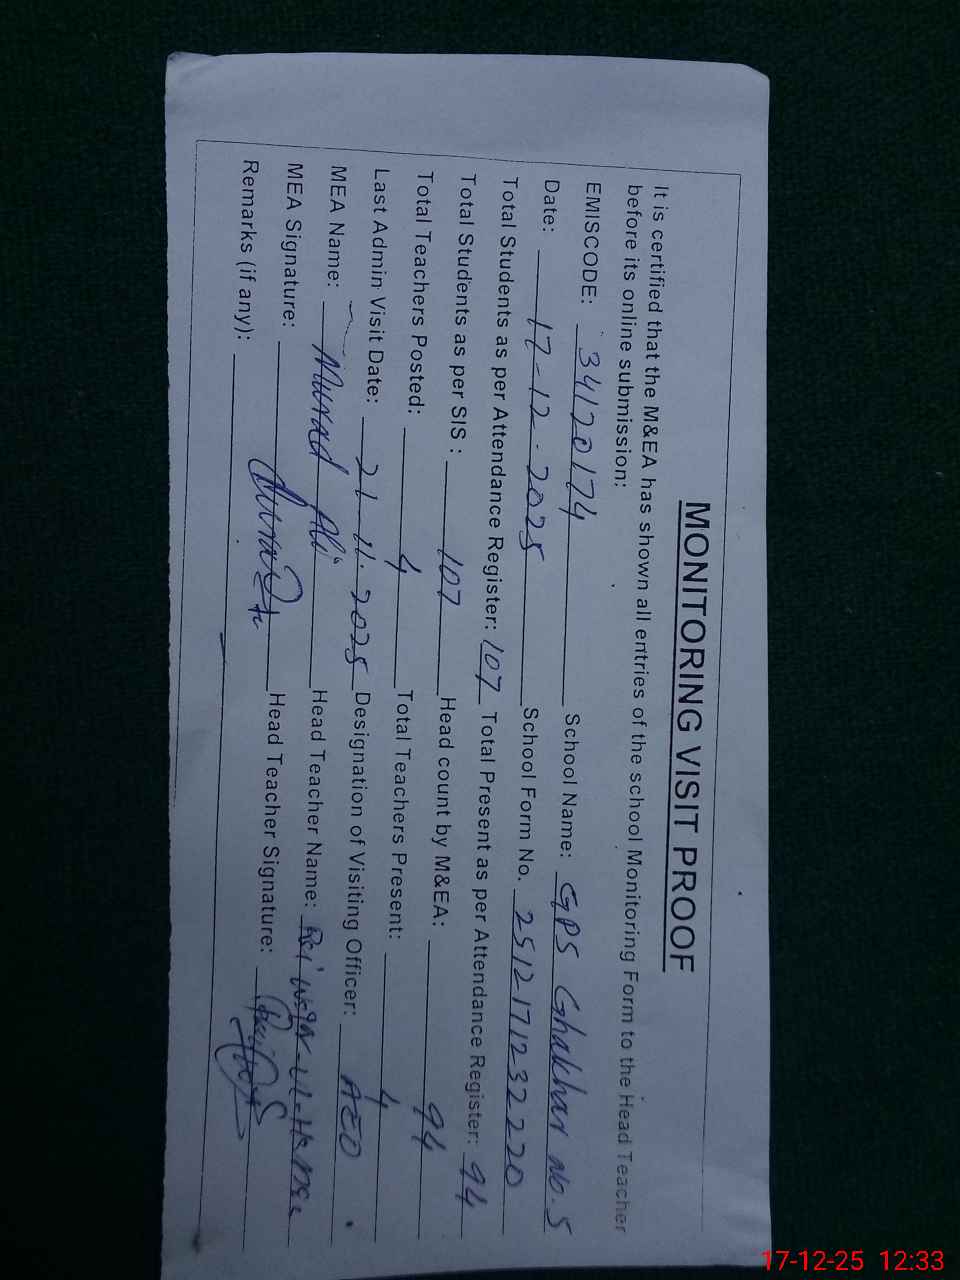 MONITORING VISIT PROOF
It is certified that the M&EA has shown all entries of the school Monitoring Form to the Head Teacher
before its online submission:
EMISCODE: 34120174 School Name: GPS Ghakhar no.5
Date: 17-12-2025 School Form No. 2512171232220
Total Students as per Attendance Register: 107 Total Present as per Attendance Register: 94
Total Students as per SIS : 107 Head count by M&EA: 94
Total Teachers Posted: 4 Total Teachers Present: 4
Last Admin Visit Date: 21-11-2025 Designation of Visiting Officer: AEO
MEA Name: Murad Ali Head Teacher Name:
MEA Signature: Head Teacher Signature:
Remarks (if any):
17-12-25 12:33